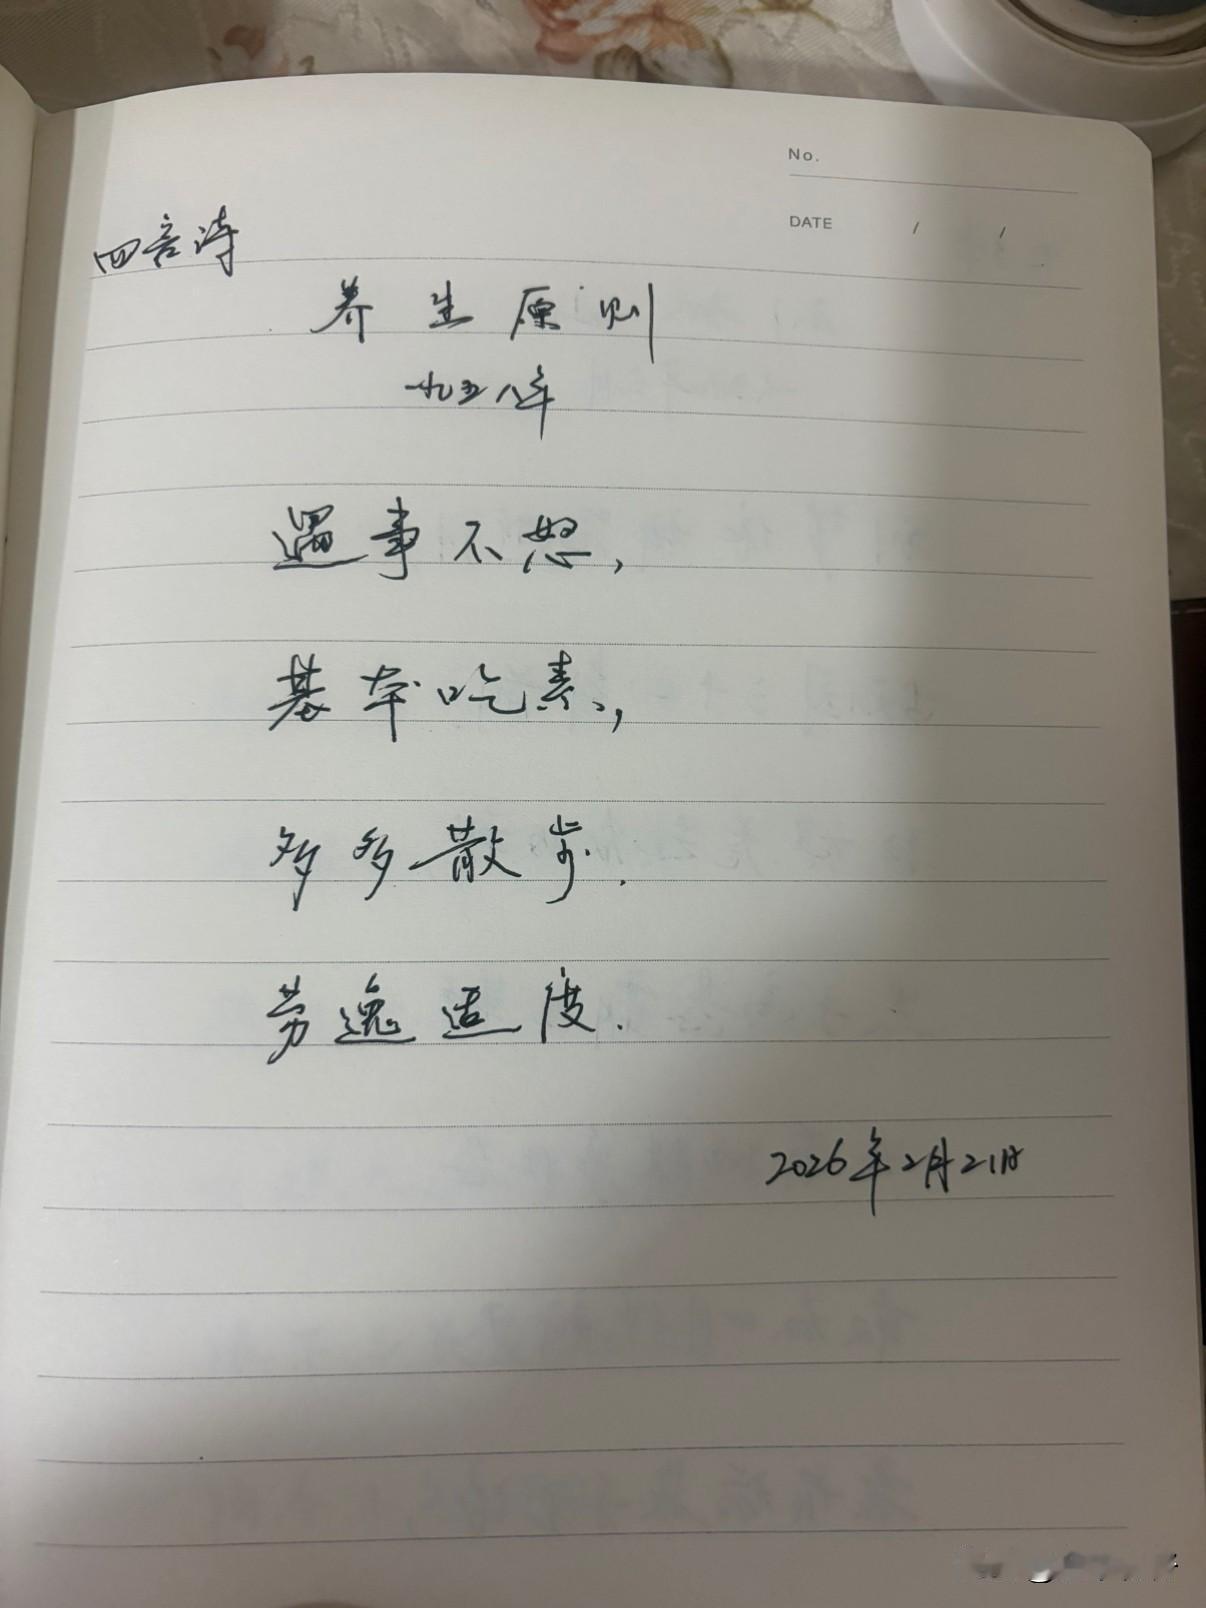 No.
DATE / /
四言诗
养生原则
一九五八年
遇事不怒,
基本吃素,
多多散步.
劳逸适度.
2026年2月21日